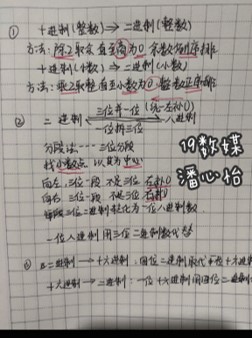 ① 十进制(整数)⇒二进制(整数)
方法：除2取余 直至商为0 余数倒序排
十进制(小数)⇒二进制(小数)
方法：乘2取整直至小数为0 整数正序排
② 二进制 三位并一位 八进制
一位拆三位
分段法 三位分段
找小数点 以其为中心
向左,三位一段 不足三位 左补0
向右 三位一段 不足三位 右补0
每段三位二进制转化为一位八进制数
一位八进制 用三位二进制数代替
19数媒
潘心怡
③ 二进制→十六进制：四位二进制
十六进制→二进制：一位十六进制用四位二进制